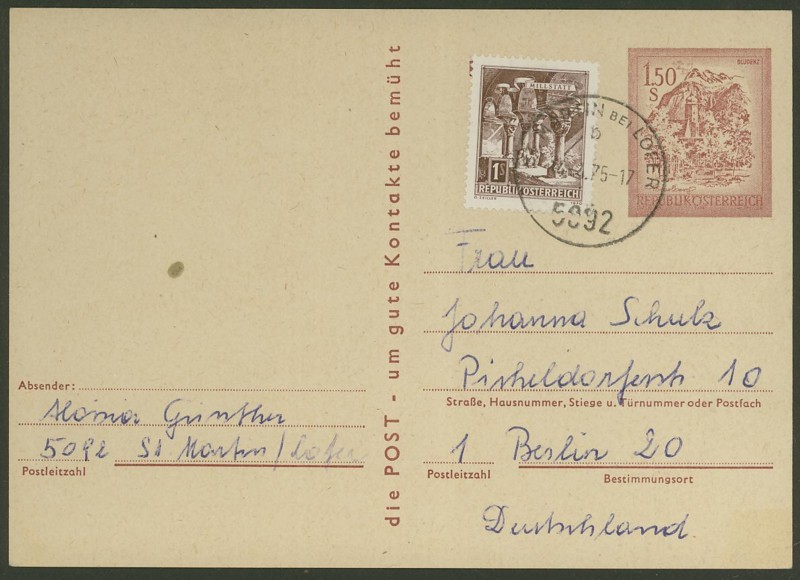 die POST - um gute Kontakte bemüht
MILLSTATT
1S
REPUBLIK ÖSTERREICH
BLUDENZ
1.50
S
REPUBLIK ÖSTERREICH
BEI LOFER
b
.75-17
5092
Frau
Johanna Schulz
10
Straße, Hausnummer, Stiege u. Türnummer oder Postfach
1 Berlin 20
Postleitzahl Bestimmungsort
Deutschland
Absender:
Günther
5092 St Martin / Lofer
Postleitzahl